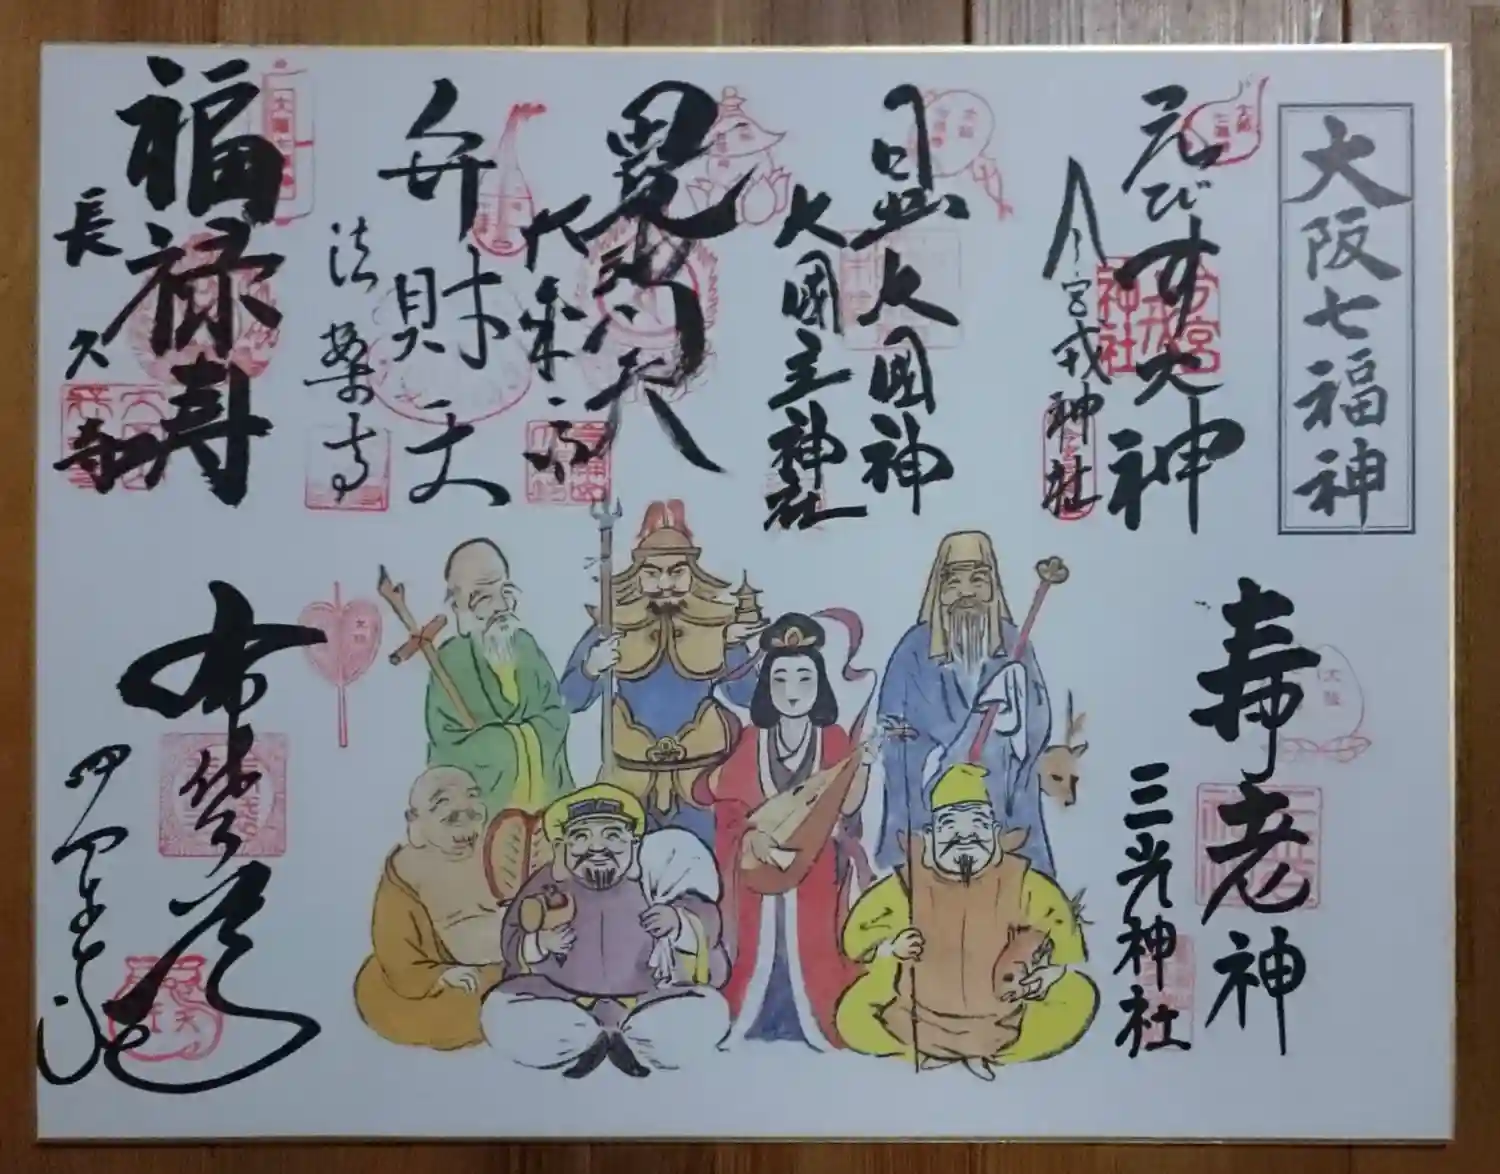 大阪七福神
えびす大神
今宮戎神社
日出大国神
大國主神社
毘沙門天
大乗坊
弁財天
法案寺
福禄寿
長久寺
寿老神
三光神社
布袋尊
四天王寺